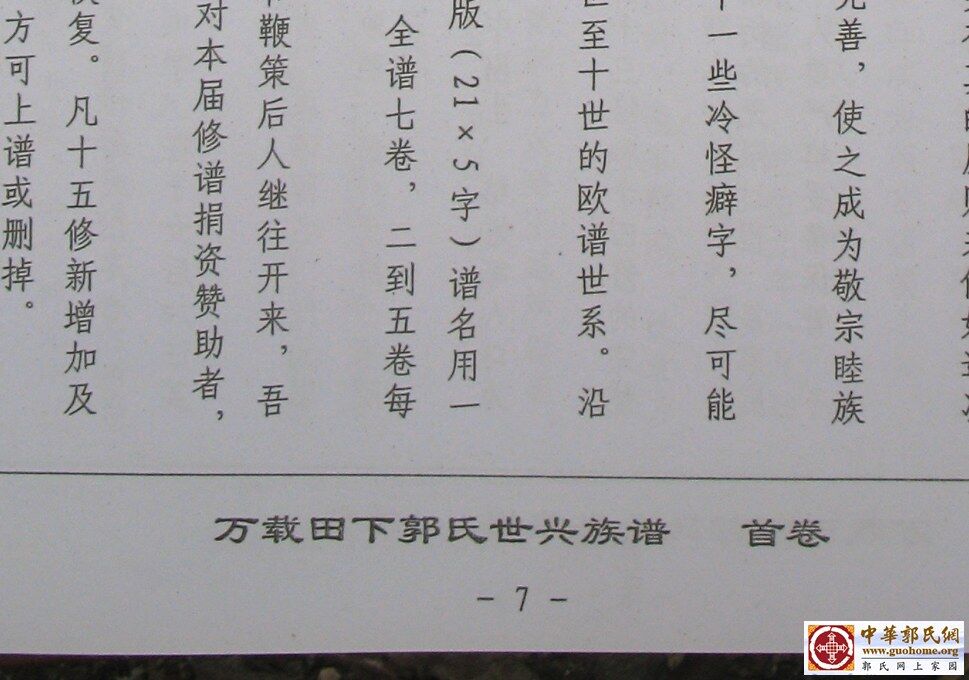 完善，使之成为敬宗睦族
一些冷怪癖字，尽可能
世至十世的欧谱世系。沿
版（21×5字）谱名用一
全谱七卷，二到五卷每
鞭策后人继往开来，吾
对本届修谱捐资赞助者，
恢复。凡十五修新增加及
方可上谱或删掉。
万载田下郭氏世兴族谱 首卷
- 7 -
中華郭氏網
www.guohome.org
郭氏网上家园